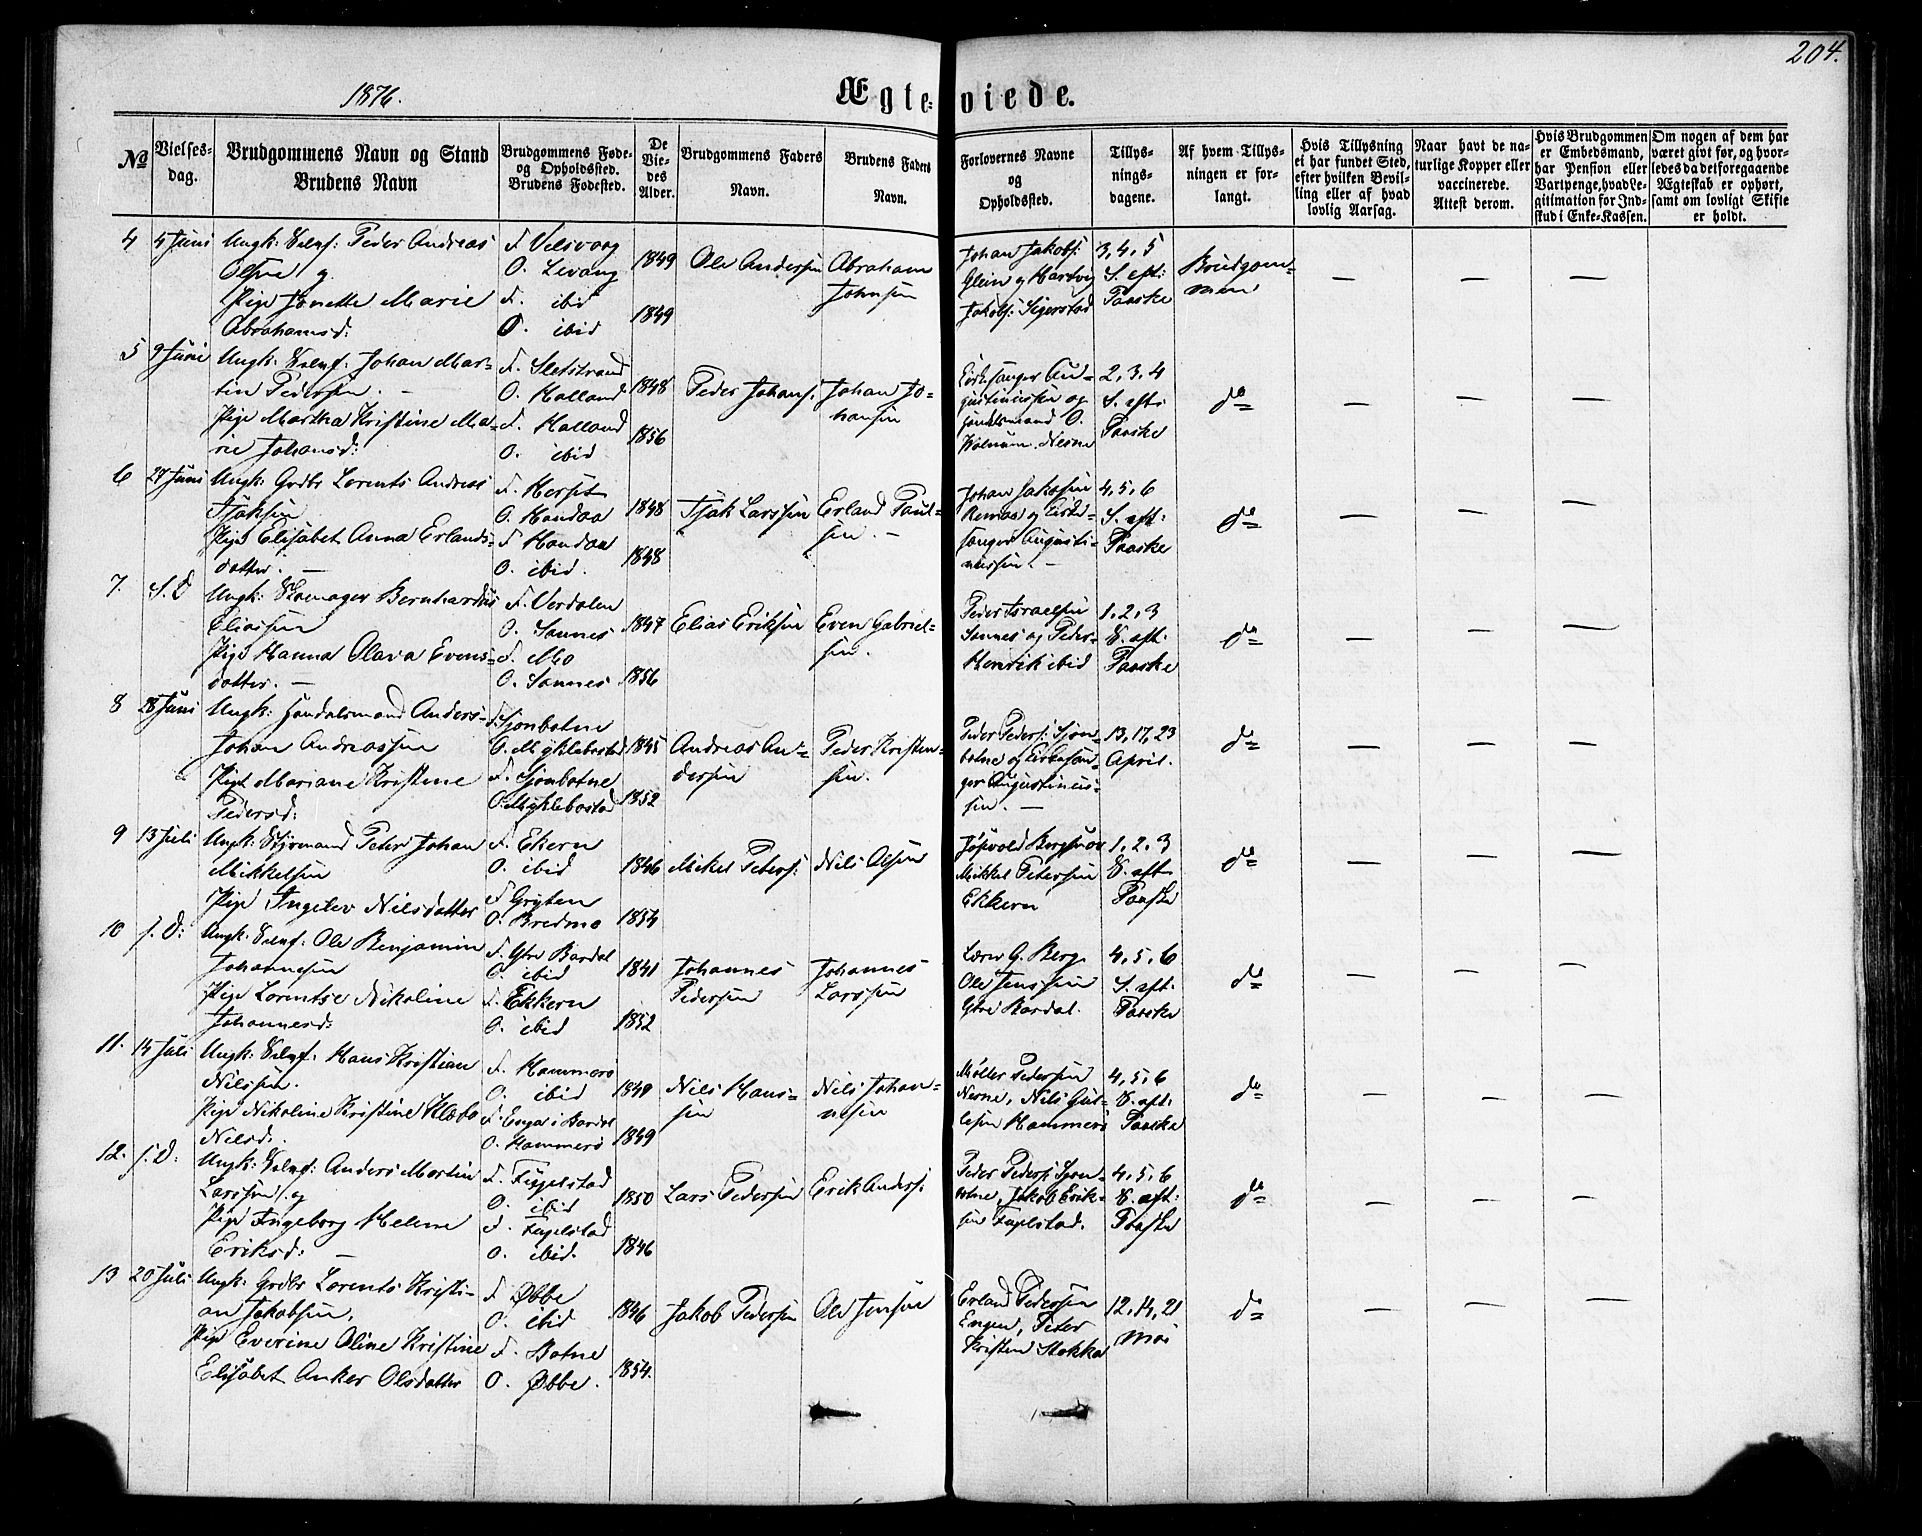 204.
1876.
Ægteviede.
No
Vielses-
dag.
Brudgommens Navn og Stand
Brudens Navn
Brudgommens Føde-
og Opholdssted.
Brudens Fødested.
De
Vie-
des
Alder.
Brudgommens Faders
Navn.
Brudens Faders
Navn.
Forlovernes Navne
og
Opholdssted.
Tillys-
nings-
dagene.
Af hvem Tillys-
ningen er for-
langt.
Hvis Tillysning
ei har fundet Sted,
efter hvilken Bevil-
ling eller af hvad
lovlig Aarsag.
Naar havt de na-
turlige Kopper eller
vaccinerede.
Attest derom.
Hvis Brudgommen
er Embedsmand,
har Pension eller
Vartpenge, hvad Le-
gitimation for Ind-
skud i Enke-Kassen.
Om nogen af dem har
været givt før, og hvor-
ledes da det foregaaende
Ægteskab er ophørt,
samt om lovligt Skifte
er holdt.
4 4 Juni Ungk: Selvf: Peder Andreas
Olsen og
Pige Jonette Marie
Abrahamsd:
F. Velsvaag
O. Levang
F. ibid
O. ibid
1849
1849
Ole Andersen
Abraham
Johnsen
Johan Jakobs:
Glein og Hartvig
Jakobs: Sigerstad
3, 4, 5
S. eft:
Paaske
Brudgom-
men
5 9 Juni Ungk: Selvf: Johan Mar-
tin Pedersen. –
Pige Martha Kristine Ma-
rie Johansd:
F. Sletstrand
O. Halland
F. Halland
O. ibid
1848
1856
Peder Johans:
Johan Jo-
hansen
Kirkesanger Au-
gustinussen og
Handelsmand O.
Nesne
2, 3, 4
S. eft:
Paaske
do
6 27 Juni Ungk: Grdbr Lorents Andreas
Isaksen
Pige Elisabet Anna Erlands-
datter. –
F. Herset
O. Handaa
F. Handaa
O. ibid.
1848
1848
Isak Larssen
Erland Paul-
sen. –
Johan Jakobsen
Remaa og Kirke-
sanger Augusti-
nussen. –
4, 5, 6
S. eft:
Paaske
do
7. S. D Ungk: Skomager Bernhardus
Eliassen
Pige Hanna Olava Evens-
datter. –
F. Verdalen
O. Sannes
F. Mo
O. Sannes
1847
1856
Elias Eriksen
Even Gabriel-
sen.
Peder Israelsen
Sannes og Peder
Henrik ibid
1, 2, 3
S. eft:
Paaske
do
8 28 Juni Ungk: Handelsmand Anders
Johan Andreassen
Pige Mariane Kristine
Pedersd:
F. Sjonbotne
O. Myklebostad
F. Sjonbotne
O. Myklebostad
1845
1852
Andreas An-
dersen
Peder Kristen-
sen.
Peder Peders: Sjon-
botne og Kirkesan-
ger Augustinus-
sen. –
13, 17, 23
April.
do
9 13 Juli Ungk: Styrmand Peter Johan
Mikkelsen
Pige Ingelev Nilsdatter
F. Ekern
O. ibid
F. Gryten
O. Bredmo
1846
1854
Mikel Peters:
Nils Olsen
Mikkel Petersen
Ekkern
1, 2, 3
S. eft
Paaske
do
10 S. D: Ungk: Selvf: Ole Benjamin
Johannesen
Pige Lorentse Nikoline
Johannesd:
F. Ytre Bardal
O. ibid
F. Ekkern
O. ibid
1841
1852
Johannes
Pedersen
Johannes
Larssen
Lærer G. Berg.
Ole Jenssen
Ytre Bardal.
4, 5, 6
S. eft.
Paaske
do
11. 14 Juli Ungk: Selvf: Hans Kristian
Nilssen.
Pige Nikoline Kristine Klæbo
Nilsd:.
F. Hammerø
O. ibid
F. Enga i Bardal
O. Hammerø
1849
Nils Hans-
sen
Nils Johan-
nesen
Møller Pedersen
Nesne, Nils
Hammerø
4, 5, 6
S. eft:
Paaske
do
12. S. D: Ungk: Selvf: Anders Martin
Larssen og
Pige Ingeborg Helene
Eriksd: –
F. Fuglstad
O. ibid
F. Fuglstad
O. ibid.
1850
1846
Lars Pedersen
Erik Anders:
Peder Peders: Sjon-
botne, Jakob Erik-
sen Fuglstad.
4, 5, 6
S. eft:
Paaske
do
13 20 Juli Ungk: Grdbr Lorents Kristi-
an Jakobsen,
Pige Everine Oline Kristine
Elisabet Anker Olsdatter
F. Øbbe
O. ibid
F. Botne
O. Øbbe.
1846
1854.
Jakob Pedersen
Ole Jensen
Erland Pedersen
Engen, Peter
Kristen Stokka
12, 14, 21
Mai
do